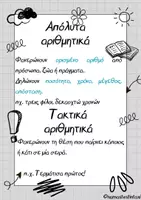 Απόλυτα
αριθμητικά
Φανερώνουν ορισμένο αριθμό από
πρόσωπα, ζώα ή πράγματα.
Δηλώνουν ποσότητα, χρόνο, μέγεθος,
απόσταση.
πχ. τρεις φίλοι, δεκαοχτώ χρονών
Τακτικά
αριθμητικά
Φανερώνουν τη θέση που παίρνει κάποιος
ή κάτι σε μία σειρά.
π.χ. Τερμάτισα πρώτος!